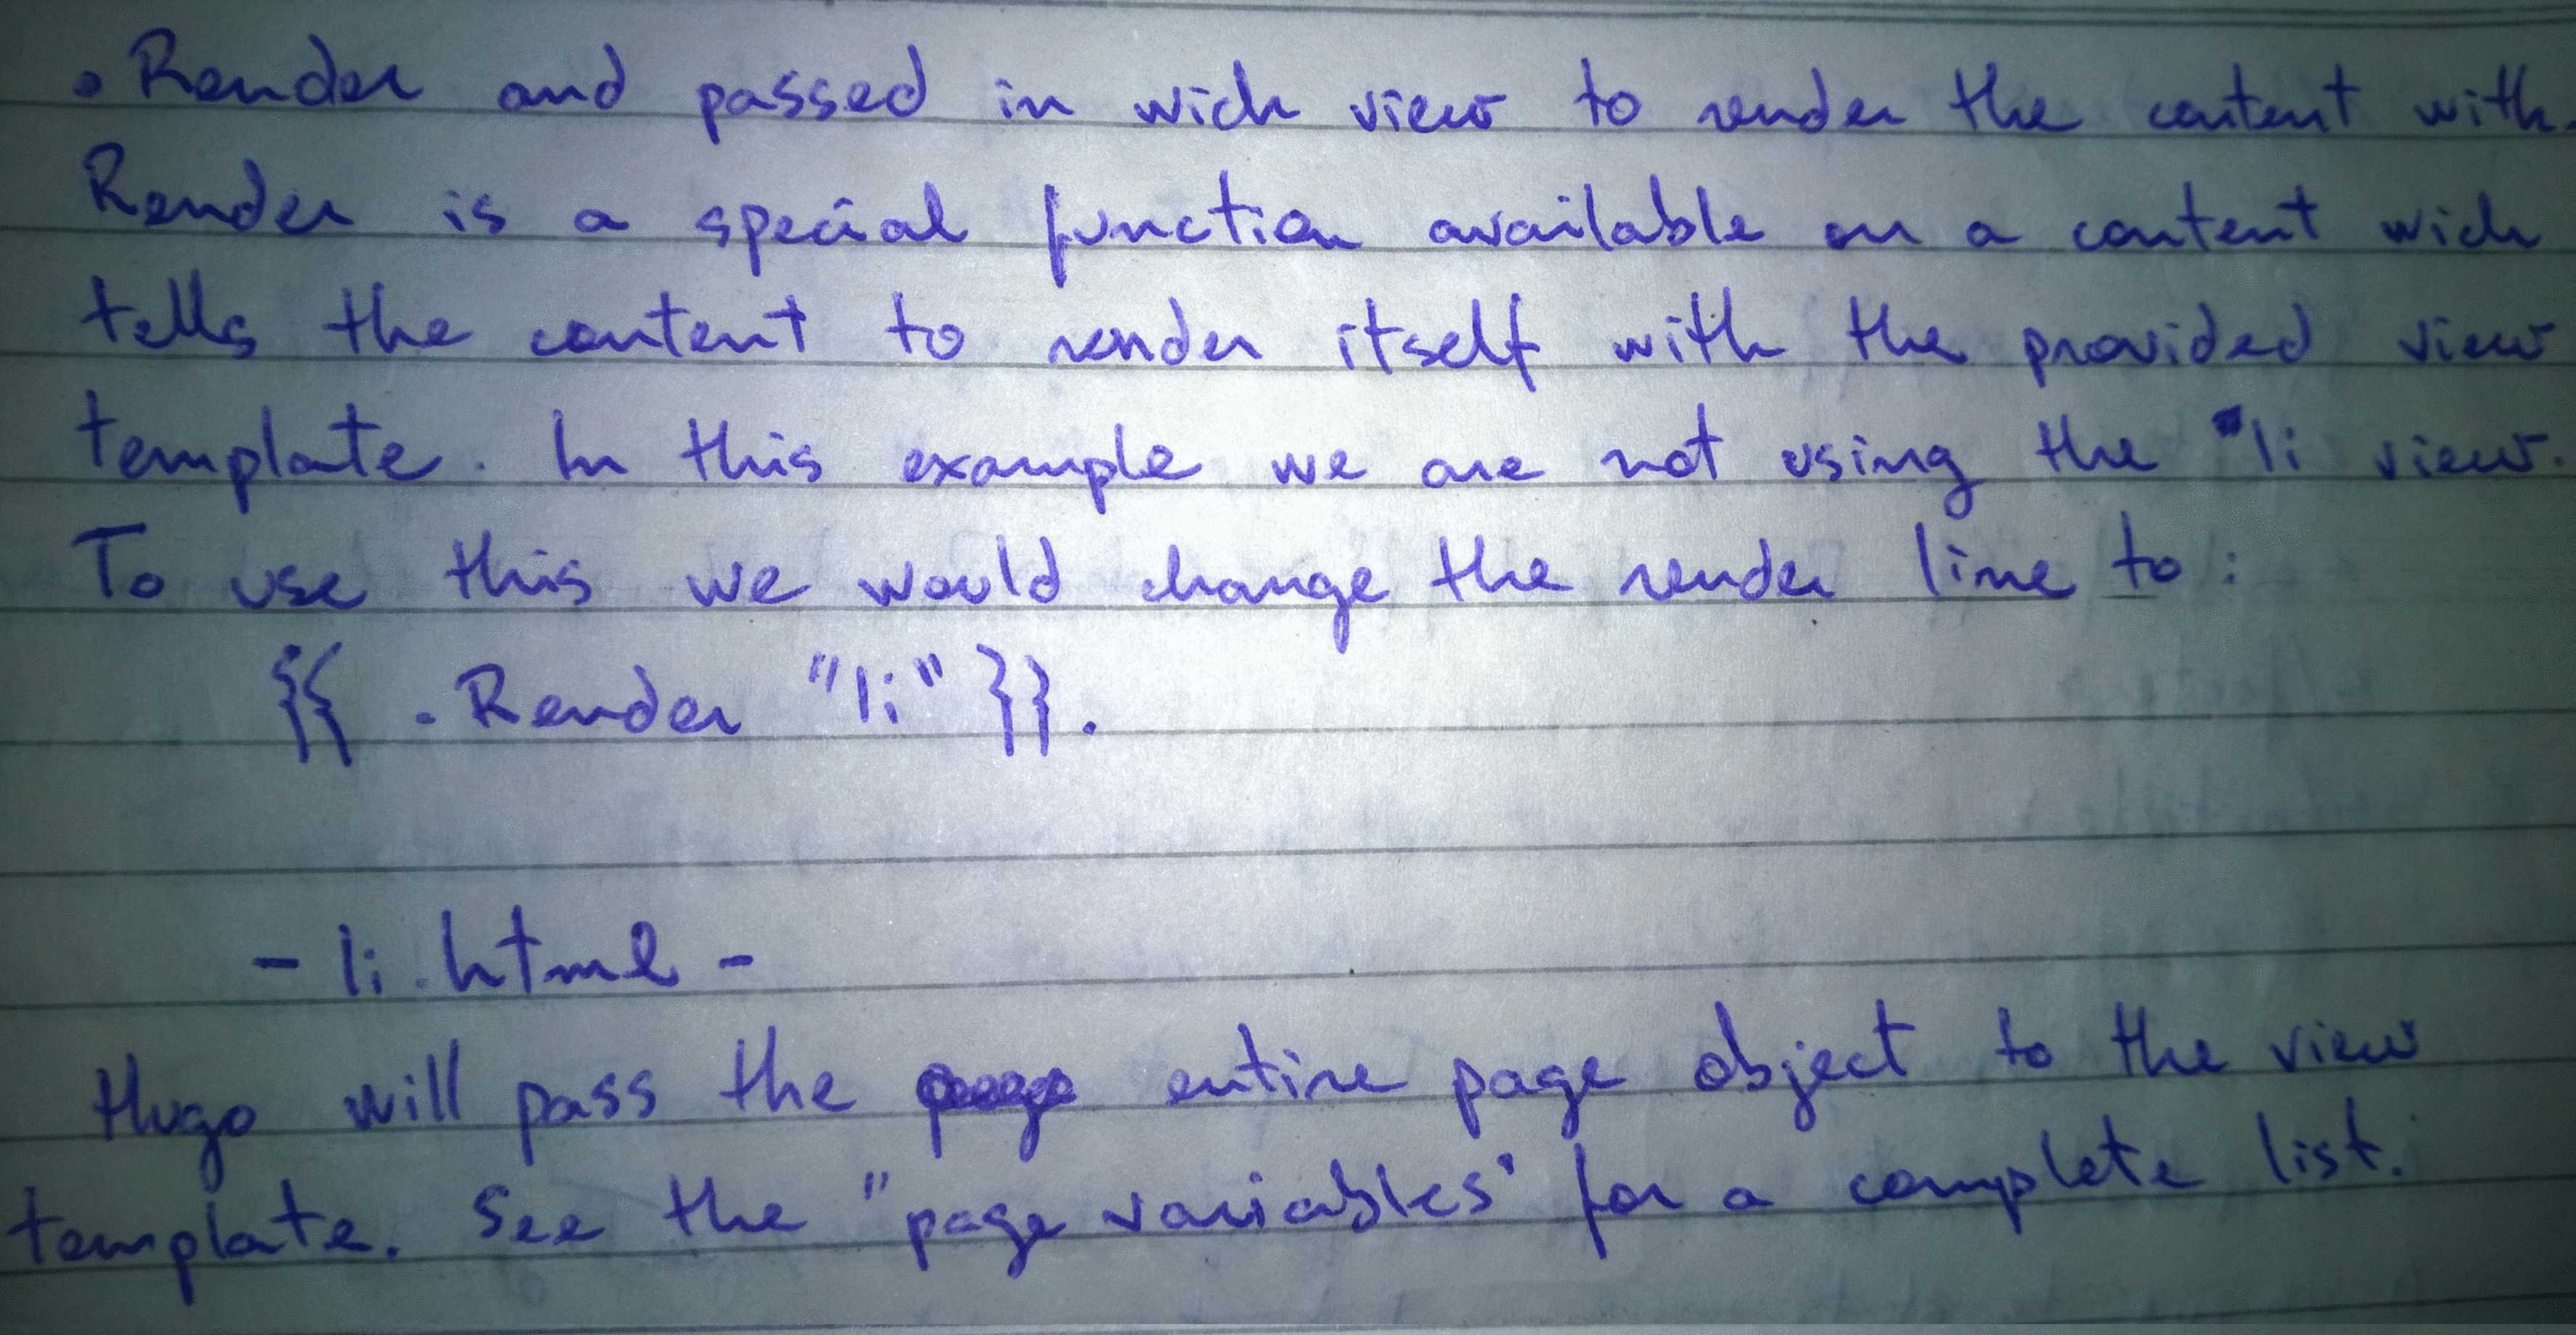 .Render and passed in wich view to render the content with.
Render is a special function available on a content wich
tells the content to render itself with the provided view
template. In this example we are not using the "li view.
To use this we would change the render line to:
{{ .Render "li" }}.
- li.html -
Hugo will pass the entire page object to the view
template. See the "page variables" for a complete list.